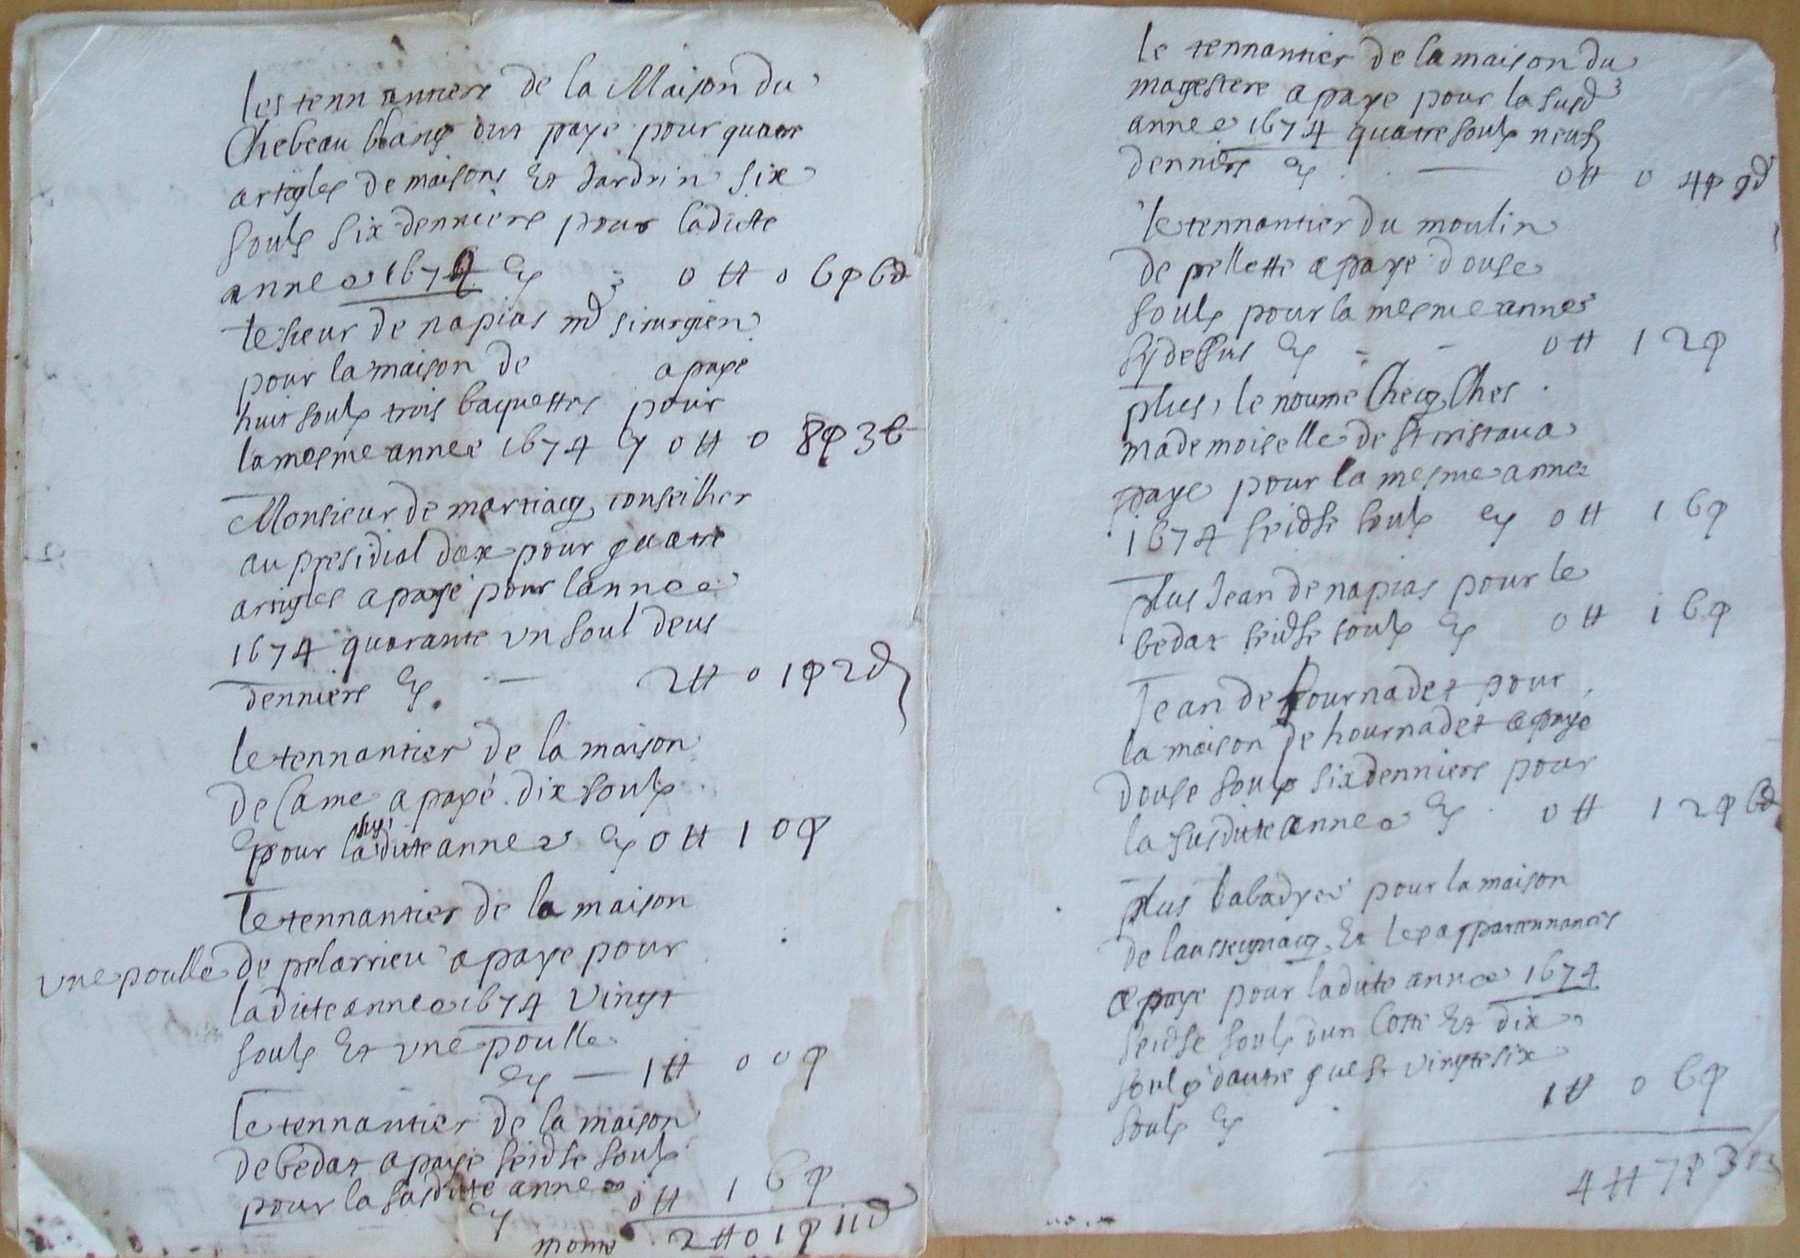 les tennantiers de la Maison du
Chebeau blang ont paye pour quatre
artigles de maisons Et Jardrin six
souls six denniers pour ladicte
annee 1674 Cy 0 tt 0 6 s 6 d
le sieur de napias md sirurgien
pour la maison de apaye
huit souls trois baquettes pour
la mesme annee 1674 Cy 0 tt 0 8 s 3 b
Monsieur de martiacq conseilher
au presidial dax pour quatre
artigles a payé pour lannee
1674 quarante un soul deus
denniers Cy 2 tt 0 1 s 2 d
le tennantier de la maison
de Came a payé dix souls
pour la susditte annee Cy 0 tt 1 0 s
Le tennantier de la maison
une poulle de pelarrieu a paye pour
laditte annee 1674 vingt
souls Et une poulle
Cy 1 tt 0 0 s
le tennantier de la maison
de bedat a paye seidse souls
pour la susditte annee 0 tt 1 6 s
Cy
monte 2 tt 0 1 s 11 d
le tennantier de la maison du
magestere a paye pour la susd
annee 1674 quatre souls neuf
denniers Cy 0 tt 0 4 s 9 d
le tennantier du moulin
de pellette a paye douse
souls pour la mesme annee
sy desus Cy 0 tt 1 2 s
plus, le noume Checq Ches
mademoiselle de a
paye pour la mesme annee
1674 seidse souls Cy 0 tt 1 6 s
plus Jean de napias pour le
bedat seidse souls Cy 0 tt 1 6 s
Jean de hournadet pour
la maison de hournadet a paye
douse souls six denniers pour
la susditte annee Cy 0 tt 1 2 s 6 d
plus labadye pour la maison
de lausseignacq Et les appartennances
a paye pour laditte annee 1674
seidse souls dun Cotte Et dix
souls dautre quest vingte six
souls Cy 1 tt 0 6 s
4 tt 7 s 3